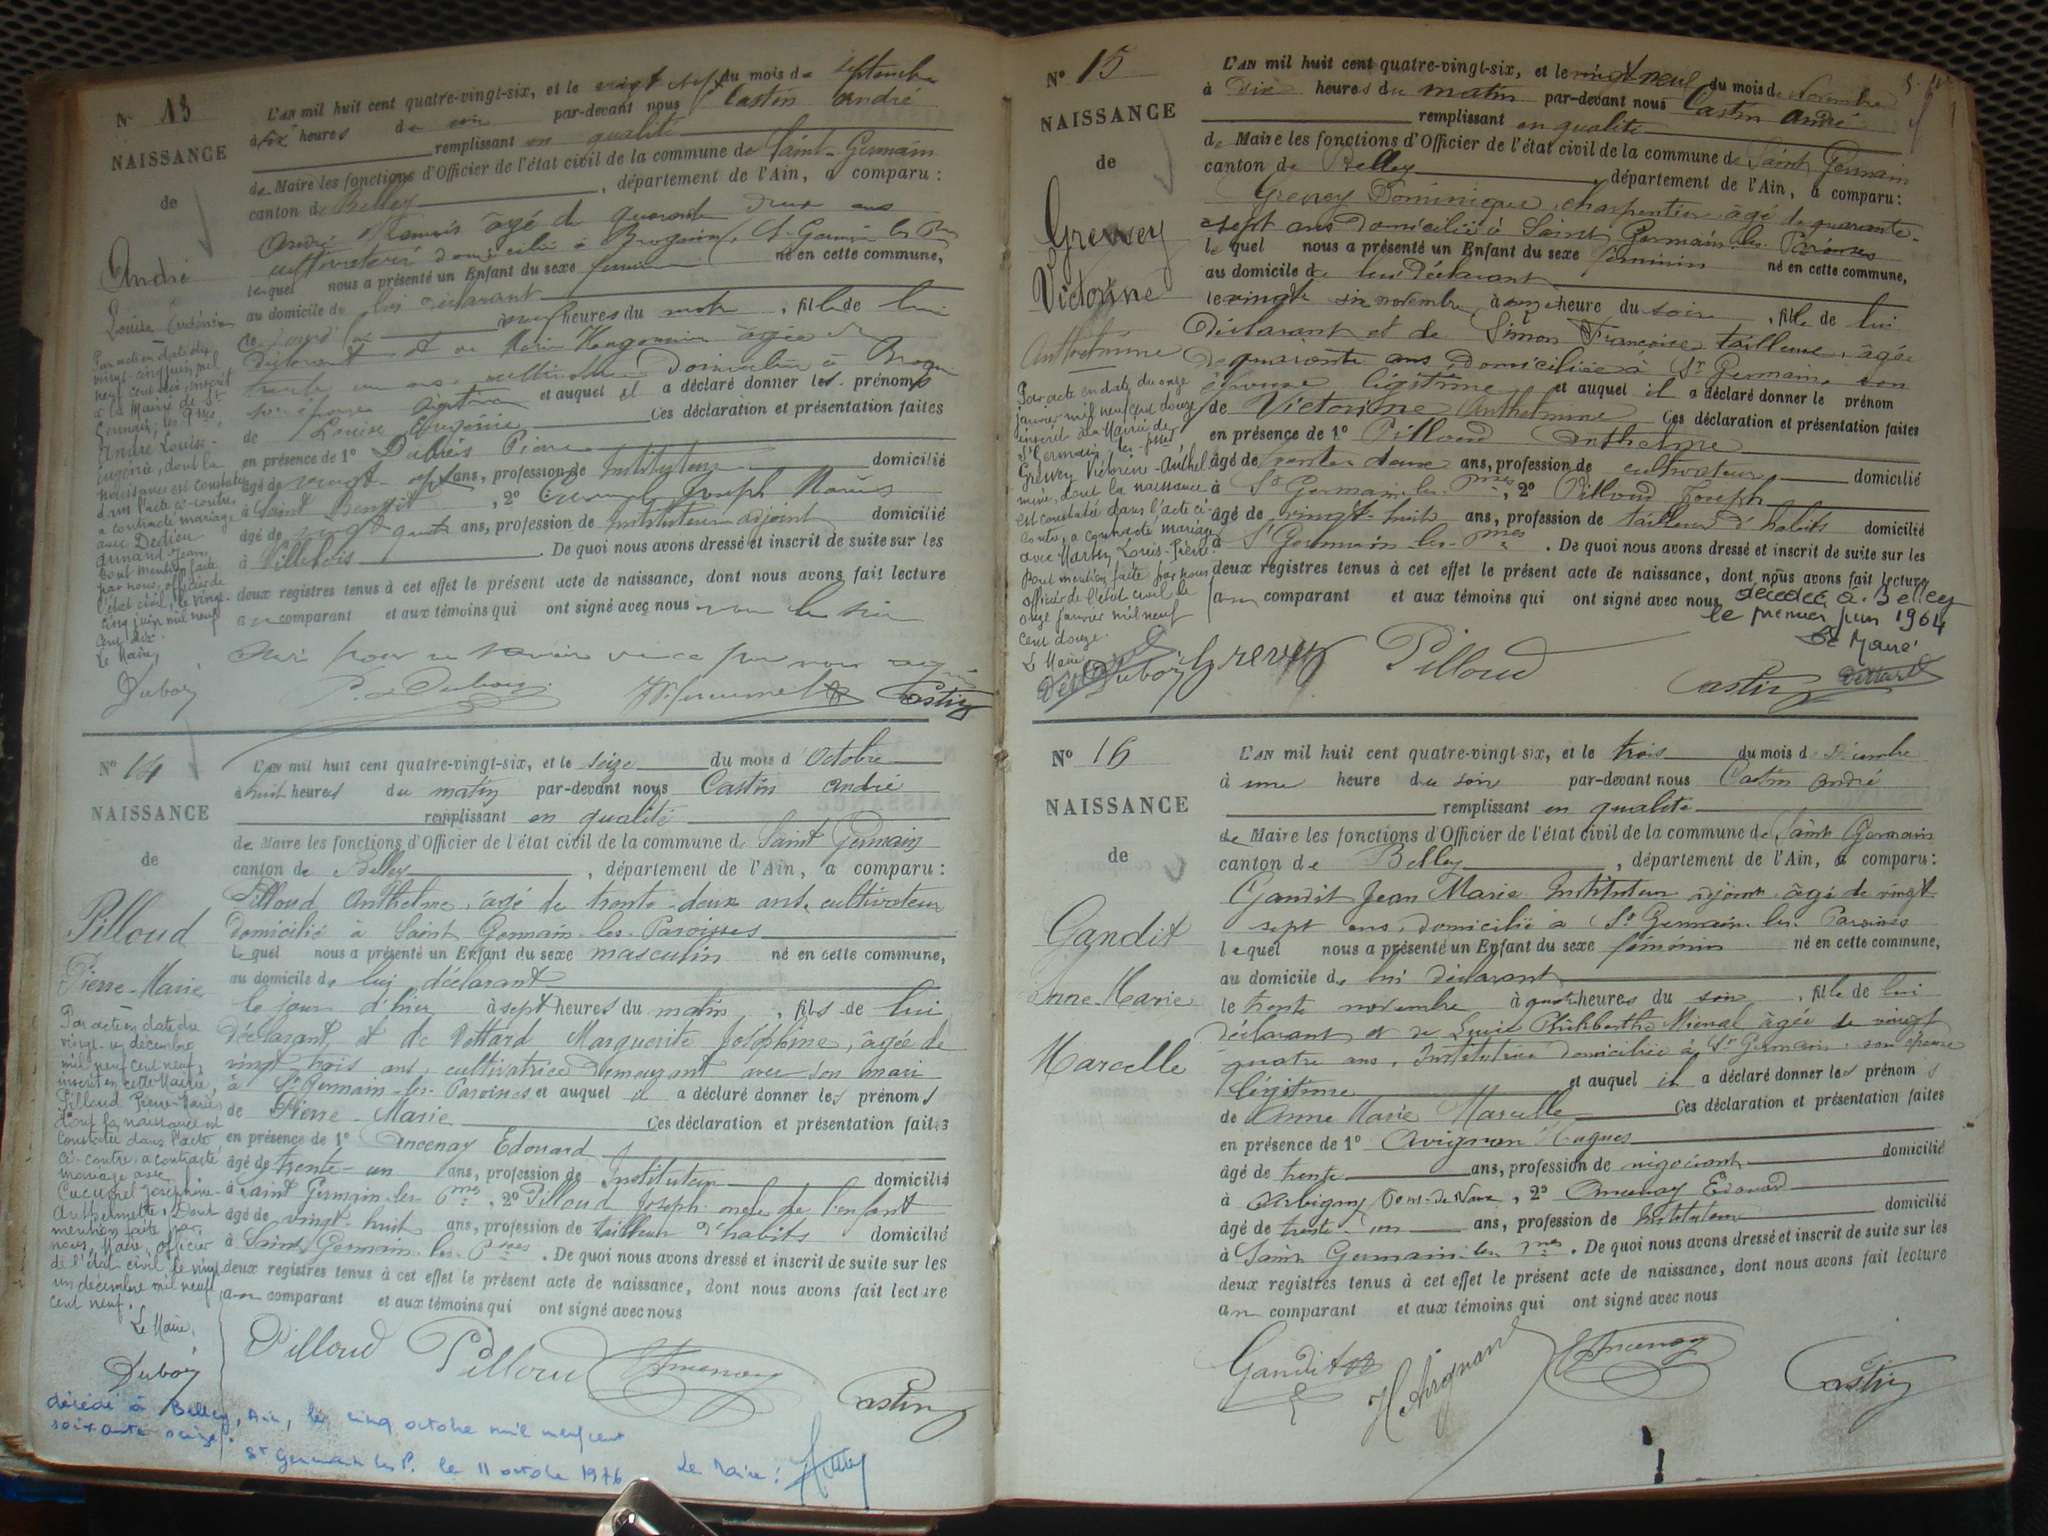 N° 13
NAISSANCE
de
André
Louise Eugénie
Par acte en date du
vingt-cinq juin mil
neuf cent dix, inscrit
à la Mairie de St
Germain les Pses,
André Louise-
Eugénie, dont la
naissance est constatée
dans l'acte ci-contre
a contracté mariage
avec Dedieu
Armand Jean,
Dont mention faite
par nous, officier de
l'état civil, le vingt-
cinq juin mil neuf
cent dix.
Le Maire,
Duboy
L'AN mil huit cent quatre-vingt-six, et le vingt sept du mois de septembre
à six heures du soir par-devant nous Castin André
remplissant en qualité
de Maire les fonctions d'Officier de l'état civil de la commune de Saint-Germain
canton de Belley, département de l'Ain, a comparu :
André âgé de quarante deux ans
cultivateur domicilié à St Germain les
lequel nous a présenté un Enfant du sexe féminin né en cette commune,
au domicile de lui déclarant
ce jour à heures du , fille de lui
déclarant et de Marie âgée de
trente un ans domiciliée à
son épouse et auquel il a déclaré donner les prénoms
de Louise Eugénie Ces déclaration et présentation faites
en présence de 1° Pierre
âgé de vingt-sept ans, profession de Instituteur domicilié
à Saint Benoit, 2° Joseph
âgé de vingt quatre ans, profession de Instituteur adjoint domicilié
à Villebois. De quoi nous avons dressé et inscrit de suite sur les
deux registres tenus à cet effet le présent acte de naissance, dont nous avons fait lecture
au comparant et aux témoins qui ont signé avec nous non le
pour ne savoir par nous
Castin
N° 14
NAISSANCE
de
Pilloud
Pierre-Marie
Par acte en date du
vingt-un décembre
mil neuf cent neuf,
inscrit en cette Mairie,
Pilloud Pierre-Marie
dont la naissance est
constatée dans l'acte
ci-contre, a contracté
mariage avec
Josephine-
Anthelmette, Dont
mention faite par
nous, Maire, officier
de l'état civil, le vingt
un décembre mil neuf
cent neuf.
Le Maire,
Duboy
L'AN mil huit cent quatre-vingt-six, et le seize du mois d'Octobre
à huit heures du matin par-devant nous Castin André
remplissant en qualité
de Maire les fonctions d'Officier de l'état civil de la commune de Saint Germain
canton de Belley, département de l'Ain, a comparu :
Pilloud Anthelme, âgé de trente-deux ans, cultivateur
domicilié à Saint Germain-les-Paroisses
lequel nous a présenté un Enfant du sexe masculin né en cette commune,
au domicile de lui déclarant
le jour d'hier à sept heures du matin, fils de lui
déclarant, et de Vettard Marguerite Joséphine, âgée de
vingt-trois ans, cultivatrice demeurant avec son mari
à St Germain-les-Paroisses et auquel il a déclaré donner les prénoms
de Pierre-Marie Ces déclaration et présentation faites
en présence de 1° Ancenay Edouard
âgé de trente-un ans, profession de Instituteur domicilié
à Saint Germain-les-Pses, 2° Pilloud Joseph oncle de l'enfant
âgé de vingt-huit ans, profession de tailleur d'habits domicilié
à Saint Germain-les-Pses. De quoi nous avons dressé et inscrit de suite sur les
deux registres tenus à cet effet le présent acte de naissance, dont nous avons fait lecture
au comparant et aux témoins qui ont signé avec nous
Pilloud Pilloud Ancenay Castin
décédé à Belley, Ain, le cinq octobre mil neuf cent
soixante seize.
St Germain les P. le 11 octobre 1976 Le Maire :
N° 15
NAISSANCE
de
Grevey
Victorine
Anthelmine
Par acte en date du onze
janvier mil neuf cent douze
inscrit à la Mairie de
St Germain les Pses
Grevey Victorine-Anthel
mine, dont la naissance
est constatée dans l'acte ci-
contre, a contracté mariage
avec Louis-Pierre.
Dont mention faite par nous
officier de l'état civil le
onze janvier mil neuf
cent douze.
Le Maire
Duboy
L'AN mil huit cent quatre-vingt-six, et le vingt neuf du mois de Novembre
à dix heures du matin par-devant nous Castin André
remplissant en qualité
de Maire les fonctions d'Officier de l'état civil de la commune de Saint Germain
canton de Belley, département de l'Ain, a comparu :
Grevey Dominique, charpentier âgé de quarante-
sept ans domicilié à Saint Germain-les-Paroisses
lequel nous a présenté un Enfant du sexe féminin né en cette commune,
au domicile de lui déclarant
le vingt six novembre à onze heure du soir, fille de lui
déclarant et de Simon Françoise, tailleuse, âgée
de quarante ans, domiciliée à St Germain, son
épouse légitime et auquel il a déclaré donner le prénom
de Victorine Anthelmine Ces déclaration et présentation faites
en présence de 1° Pilloud Anthelme
âgé de trente deux ans, profession de cultivateur domicilié
à St Germain-les-Pses, 2° Pilloud Joseph
âgé de vingt-huit ans, profession de tailleur d'habits domicilié
à St Germain-les-Pses. De quoi nous avons dressé et inscrit de suite sur les
deux registres tenus à cet effet le présent acte de naissance, dont nous avons fait lecture
au comparant et aux témoins qui ont signé avec nous
décédée à Belley
le premier juin 1964
Le Maire
Grevey Pilloud Castin
N° 16
NAISSANCE
de
Gandit
Anne-Marie
Marcelle
L'AN mil huit cent quatre-vingt-six, et le trois du mois de Décembre
à une heure du soir par-devant nous Castin André
remplissant en qualité
de Maire les fonctions d'Officier de l'état civil de la commune de Saint Germain
canton de Belley, département de l'Ain, a comparu :
Gandit Jean Marie Instituteur adjoint âgé de vingt
sept ans, domicilié à St Germain-les-Paroisses
lequel nous a présenté un Enfant du sexe féminin né en cette commune,
au domicile de lui déclarant
le trente novembre à quatre heures du soir, fille de lui
déclarant et de âgée de vingt
quatre ans, Institutrice domiciliée à St Germain, son épouse
légitime et auquel il a déclaré donner les prénoms
de Anne Marie Marcelle Ces déclaration et présentation faites
en présence de 1° Avignan Hugues
âgé de trente ans, profession de négociant domicilié
à Arbigny Pont-de-Vaux, 2° Ancenay Edouard
âgé de trente-un ans, profession de Instituteur domicilié
à Saint Germain-les Pses. De quoi nous avons dressé et inscrit de suite sur les
deux registres tenus à cet effet le présent acte de naissance, dont nous avons fait lecture
au comparant et aux témoins qui ont signé avec nous
Gandit H Avignan Ancenay Castin